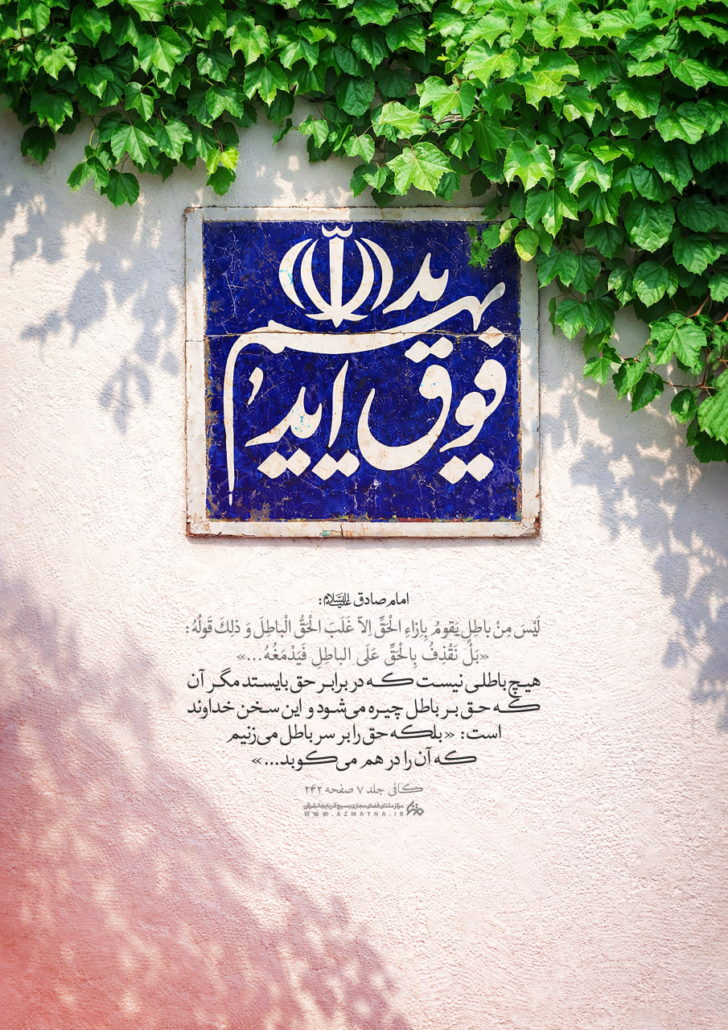 ید الله
فوق ایدیهم
امام صادق علیه‌السلام:
لَيْسَ مِنْ باطِلٍ يَقومُ بِإزاءِ الْحَقِّ اِلاّ غَلَبَ الحَقُّ الْباطِلَ وَ ذلكَ قَولُهُ:
«بَلْ نَقْذِفُ بِالْحَقِّ عَلَى الباطِلِ فَيَدْمَغُهُ...»
هیچ باطلی نیست که در برابر حق بایستد مگر آن
که حق بر باطل چیره می‌شود و این سخن خداوند
است: «بلکه حق را بر سر باطل می‌زنیم
که آن را در هم می‌کوبد...»
کافی جلد ۷ صفحه ۲۴۲
مرکز متنای فضای مجازی بسیج آذربایجان‌شرقی
WWW.AZMATNA.IR